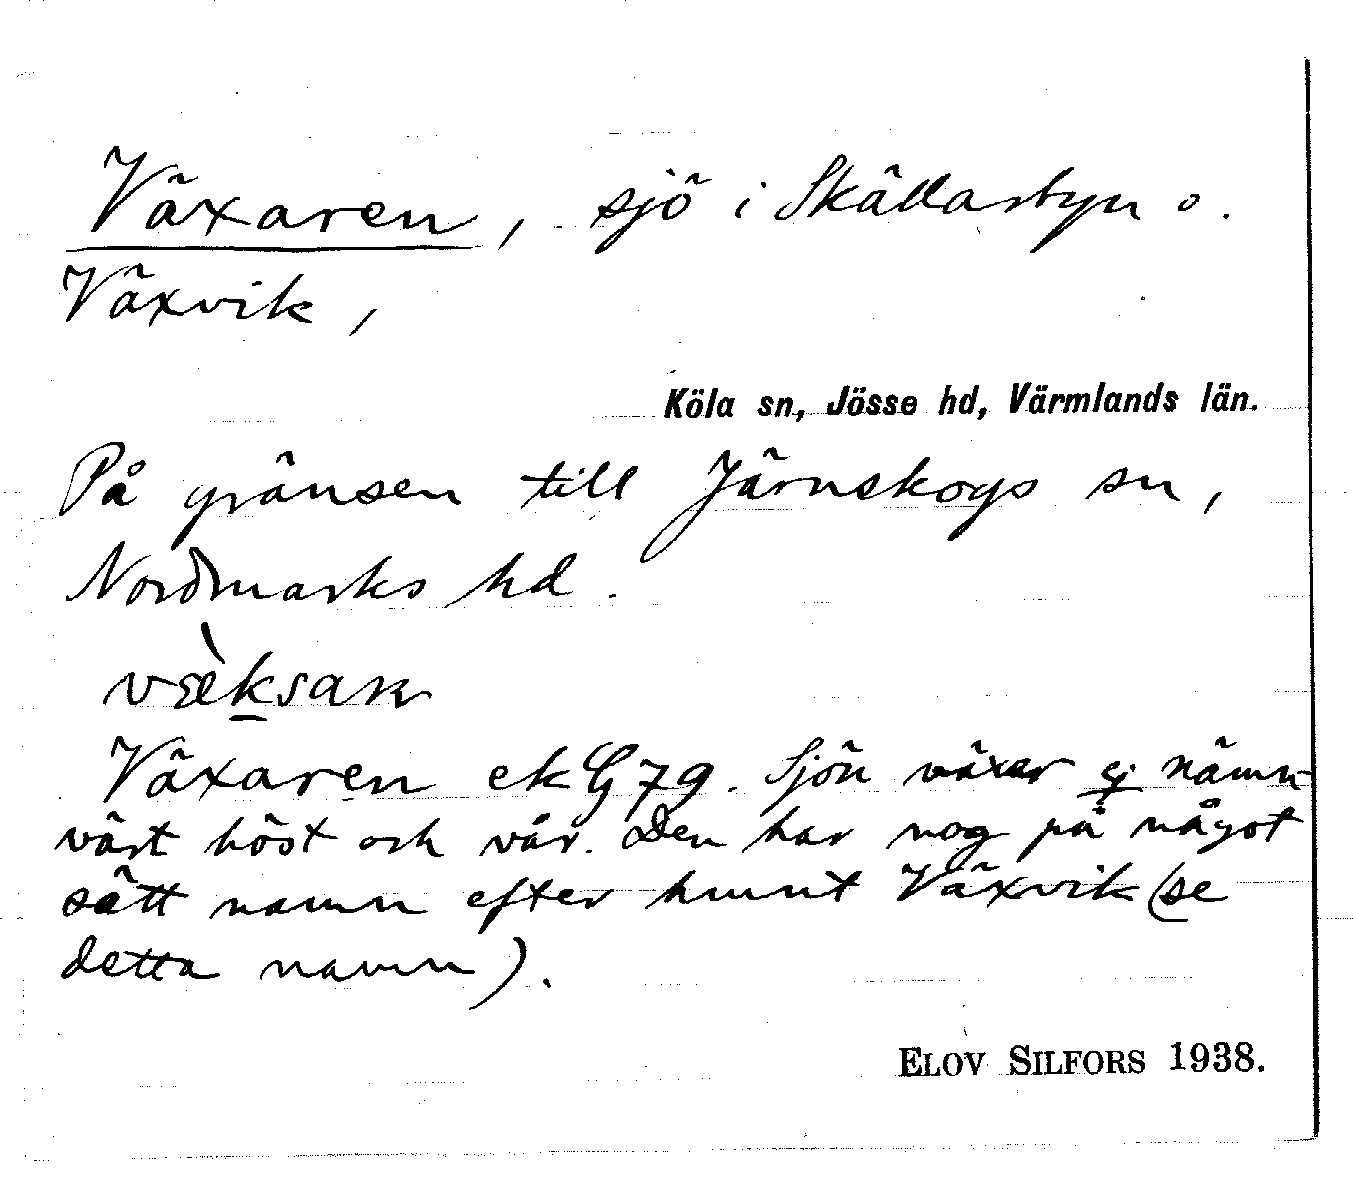 Växaren, sjö i Skällarbyn o.
Växvik,
Köla sn, Jösse hd, Värmlands län.
På gränsen till Järnskogs sn,
Nordmarks hd.
Växaren ek G 79. Sjön växer ej nämn-
värt höst och vår. Den har nog på något
sätt namn efter hmnt Växvik (se
detta namn).
ELOV SILFORS 1938.